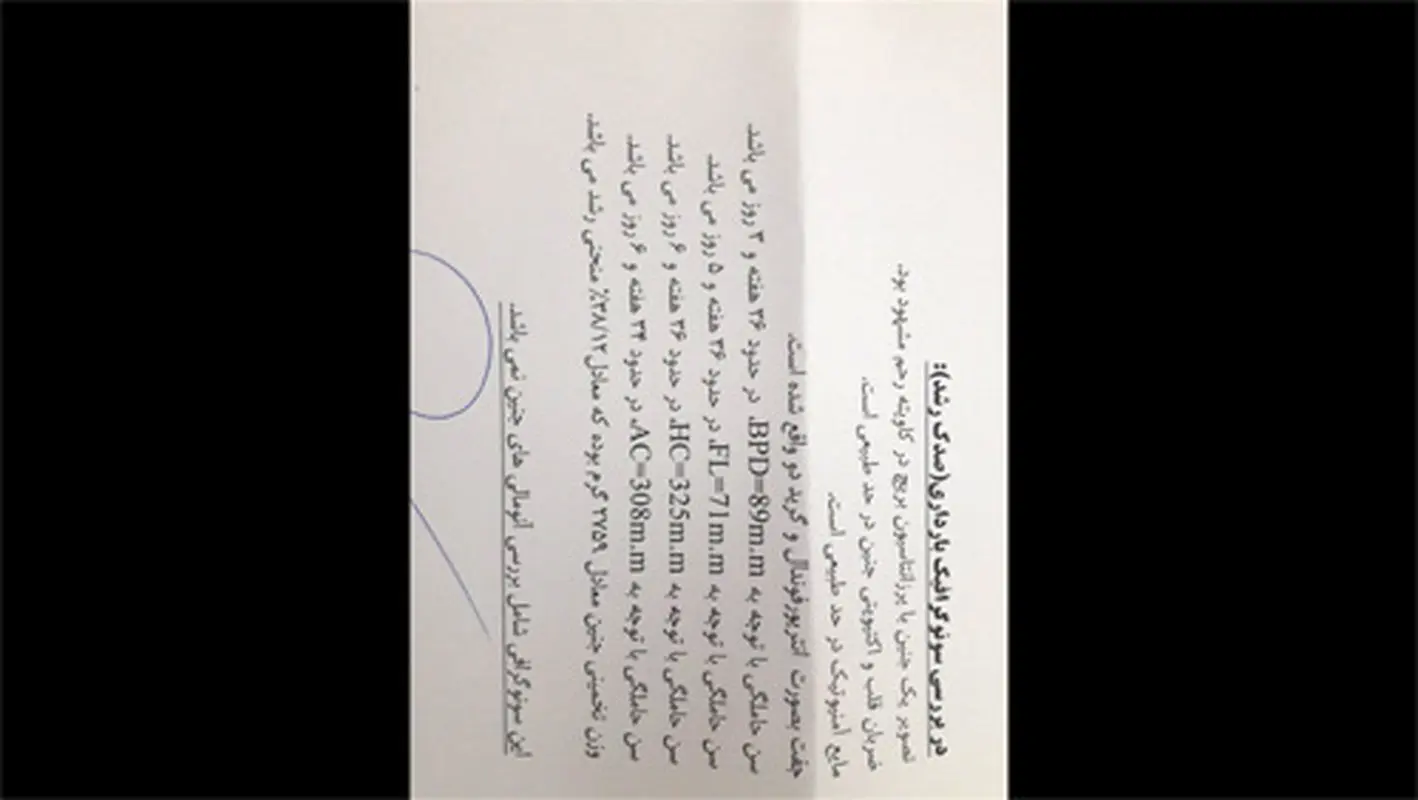 در بررسی سونوگرافیک بارداری(صدک رشد):
تصویر یک جنین با پرزانتاسیون بریچ در کاویته رحم مشهود بود.
ضربان قلب و اکتیویتی جنین در حد طبیعی است.
مایع آمنیوتیک در حد طبیعی است.
جفت بصورت آنتریورفوندال و گرید دو واقع شده است.
سن حاملگی با توجه به BPD=89m.m، در حدود ۳۶ هفته و ۳ روز می باشد.
سن حاملگی با توجه به FL=71m.m، در حدود ۳۶ هفته و ۵ روز می باشد.
سن حاملگی با توجه به HC=325m.m، در حدود ۳۶ هفته و ۶ روز می باشد.
سن حاملگی با توجه به AC=308m.m، در حدود ۳۴ هفته و ۶ روز می باشد.
وزن تخمینی جنین معادل ۲۷۵۹ گرم بوده که معادل ۳۸/۱۲% منحنی رشد می باشد.
این سونوگرافی شامل بررسی آنومالی های جنین نمی باشد.